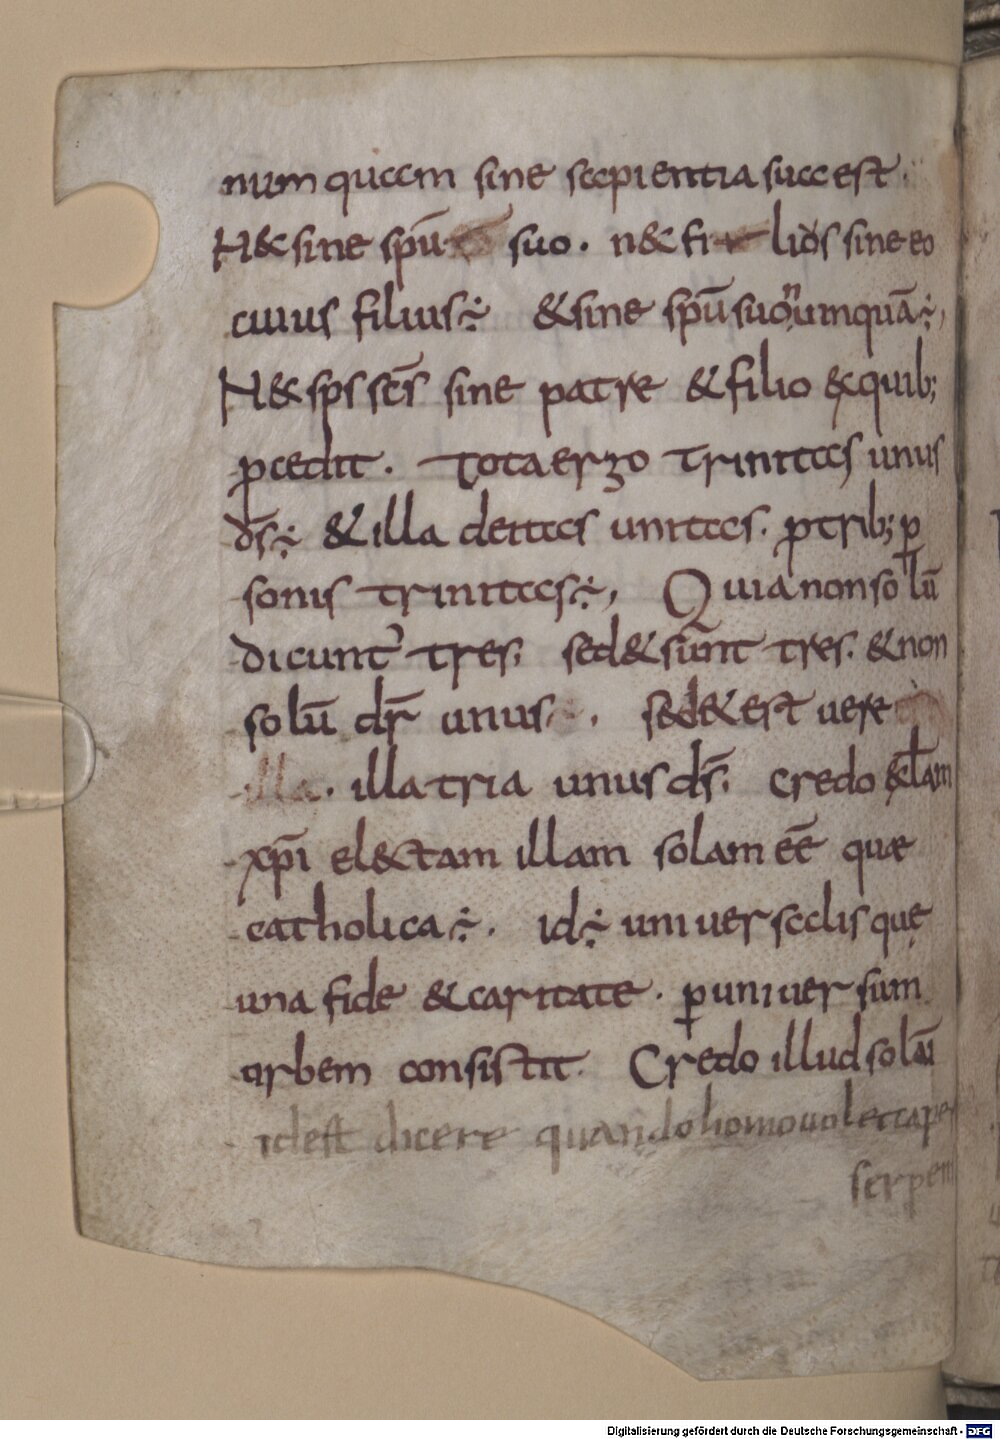 numquam sine sapientia sua est.
N&sine spū suo. n&fi lios sine eo
cuius filius÷ &sine spū suo numquā÷,
N&sps scs̄ sine patre &filio &quib;
pcedit. Tota ergo trinitas unus
ds̄÷ &illa deitas unitas. ptrib; p
sonis trinitas÷, Quia non solū
dicunt' tres; sed&sunt tres. &non
solū dr̄ unus. sed&est uere
illa. illa tria unus ds̄. Credo &clam
xp̄i el&ctam illam solam eē que
catholica÷. id÷ uniuersalis quę
una fide &caritate. p uniuersum
orbem consistit. Credo illud solū
id est dicere quando homo uolet cape
serpem
Digitalisierung gefördert durch die Deutsche Forschungsgemeinschaft - DFG